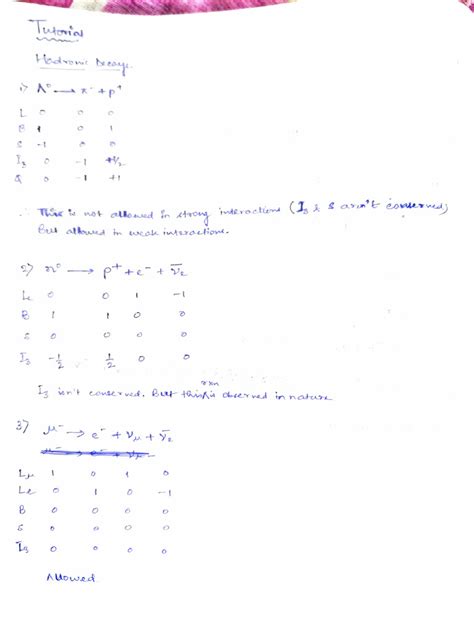 Tutorial
Hadronic Decays
1) Λ⁰ → π⁻ + p⁺
L 0 0 0
B 1 0 1
S -1 0 0
I₃ 0 -1 +1/2
Q 0 -1 +1
∴ This is not allowed in strong interactions (I₃ & S aren't conserved)
But allowed in weak interactions.
2) n⁰ → p⁺ + e⁻ + ν̄e
Le 0 0 1 -1
B 1 1 0 0
S 0 0 0 0
I₃ -1/2 1/2 0 0
rxn
I₃ isn't conserved. But this is observed in nature
3) μ⁻ → e⁻ + νμ + ν̄e
Lμ 1 0 1 0
Le 0 1 0 -1
B 0 0 0 0
S 0 0 0 0
I₃ 0 0 0 0
Allowed